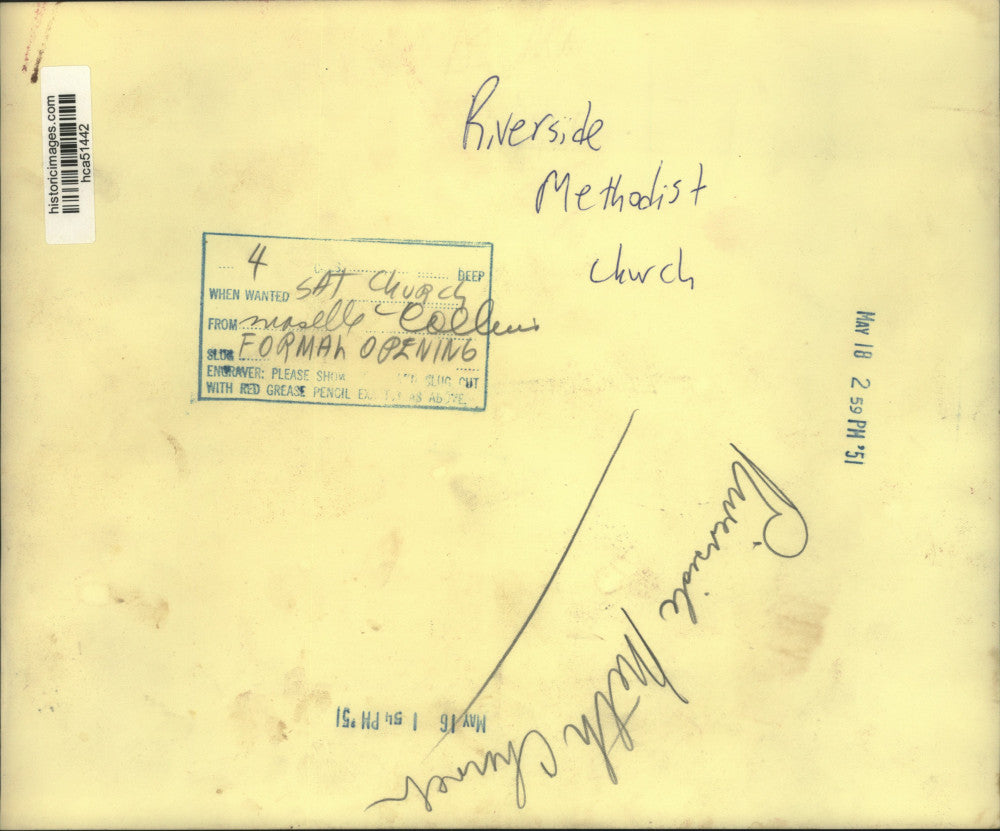 historicimages.com
hca51442
Riverside
Methodist
church
4 DEEP
WHEN WANTED SAT Church
FROM Collins
SLUG FORMAL OPENING
ENGRAVER: PLEASE SHOW AND SLUG CUT
WITH RED GREASE PENCIL AS ABOVE.
MAY 18 2 59 PM '51
Riverside Meth Church
MAY 16 1 54 PM '51